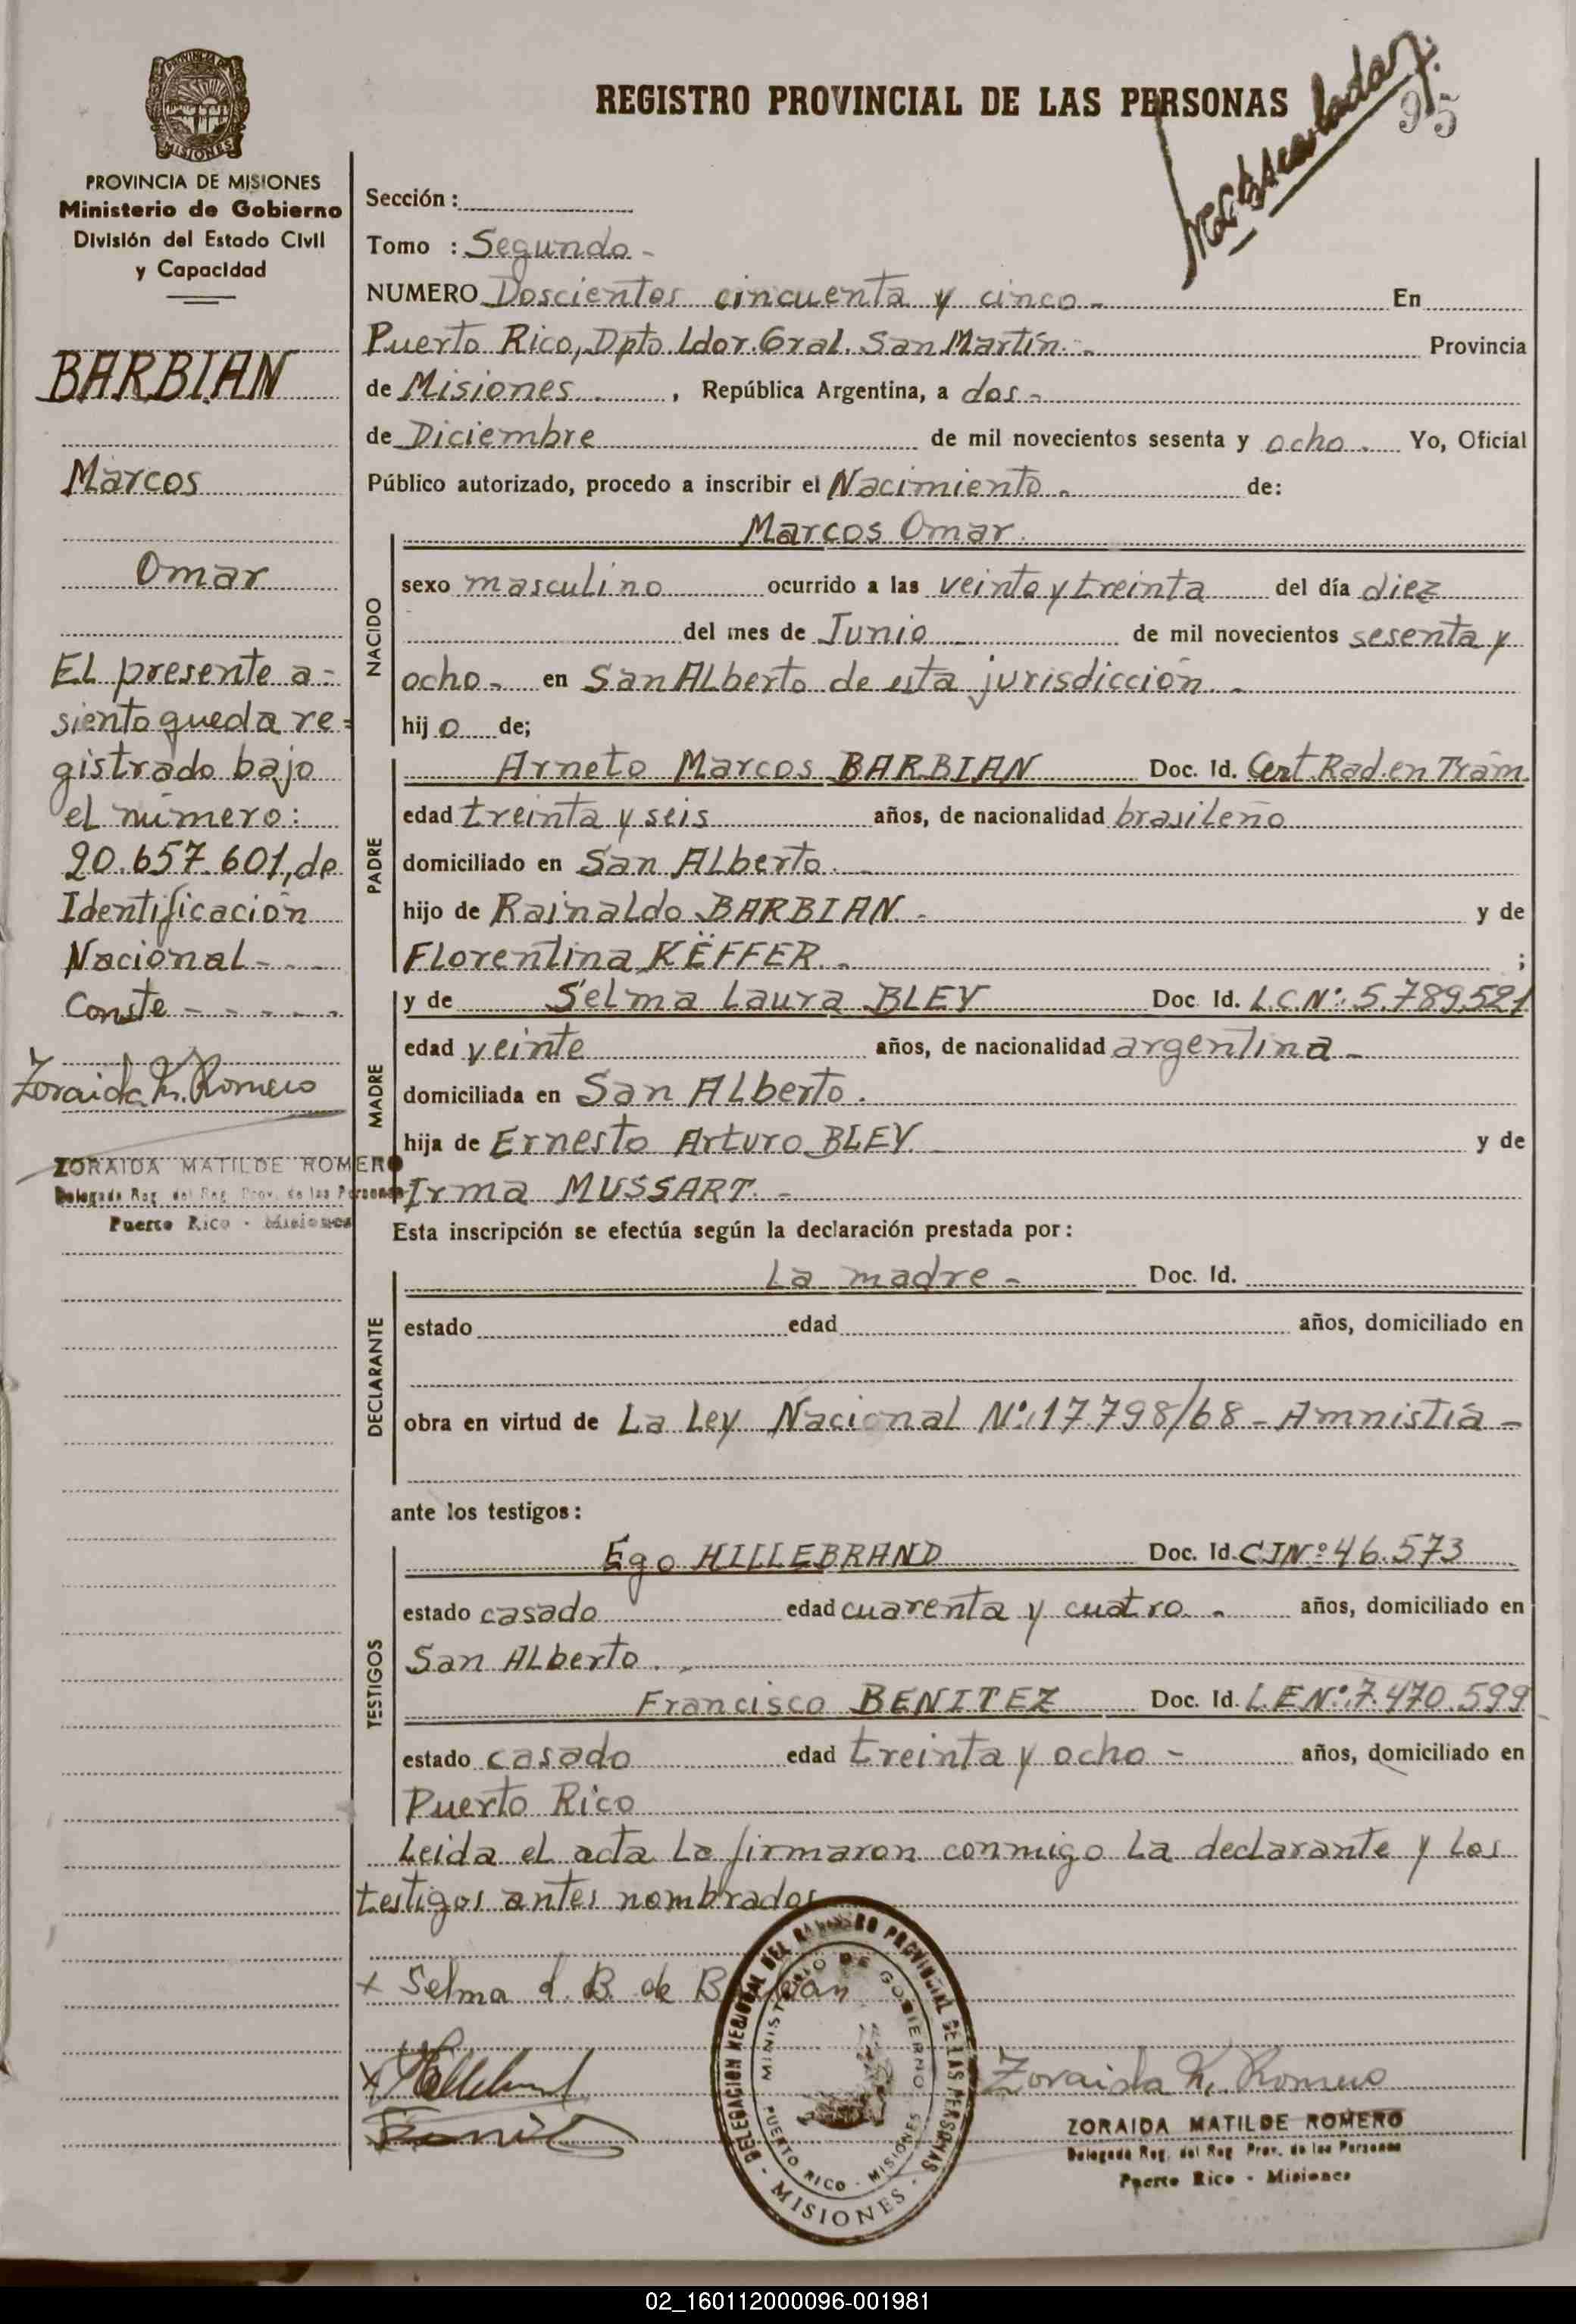 REGISTRO PROVINCIAL DE LAS PERSONAS
95
PROVINCIA DE MISIONES
MISIONES
PROVINCIA DE MISIONES
Ministerio de Gobierno
División del Estado Civil
y Capacidad
BARBIAN
Marcos
Omar
El presente a=
siento queda re=
gistrado bajo
el número:
20.657.601, de
Identificación
Nacional - - -
Conste - - - - -
Zoraida M. Romero
ZORAIDA MATILDE ROMERO
Delegada Reg. del Reg. Prov. de las Personas
Puerto Rico - Misiones
Sección :
Tomo : Segundo -
NUMERO Doscientos cincuenta y cinco - En
Puerto Rico, Dpto. Ldor. Gral. San Martín. - Provincia
de Misiones , República Argentina, a dos -
de Diciembre de mil novecientos sesenta y ocho - Yo, Oficial
Público autorizado, procedo a inscribir el Nacimiento - de:
NACIDO
Marcos Omar
sexo masculino ocurrido a las veinte y treinta del día diez
del mes de Junio de mil novecientos sesenta y
ocho - en San Alberto de esta jurisdicción. -
hij o de;
PADRE
Arneto Marcos BARBIAN Doc. Id. Cert. Rad. en Trám.
edad treinta y seis años, de nacionalidad brasileño
domiciliado en San Alberto. -
hijo de Rainaldo BARBIAN - y de
Florentina KËFFER. - ;
MADRE
y de Selma Laura BLEY Doc. Id. L.C.Nº: 5.789.521
edad veinte años, de nacionalidad argentina -
domiciliada en San Alberto.
hija de Ernesto Arturo BLEY. - y de
Irma MUSSART. -
Esta inscripción se efectúa según la declaración prestada por:
DECLARANTE
La madre - Doc. Id.
estado edad años, domiciliado en
obra en virtud de La Ley Nacional Nº: 17.798/68 - Amnistía -
ante los testigos:
TESTIGOS
Ego HILLEBRAND Doc. Id. CINº 46.573
estado casado edad cuarenta y cuatro - años, domiciliado en
San Alberto. -
Francisco BENITEZ Doc. Id. L.E.Nº: 7.470.599
estado casado edad treinta y ocho - años, domiciliado en
Puerto Rico
Leida el acta la firmaron conmigo la declarante y los
testigos antes nombrados
x Selma L. B. de Barbian
DELEGACION REGIONAL DEL REGISTRO PROVINCIAL DE LAS PERSONAS - MISIONES -
MINISTERIO DE GOBIERNO
PUERTO RICO - MISIONES
Zoraida M. Romero
ZORAIDA MATILDE ROMERO
Delegada Reg. del Reg. Prov. de las Personas
Puerto Rico - Misiones
02_160112000096-001981